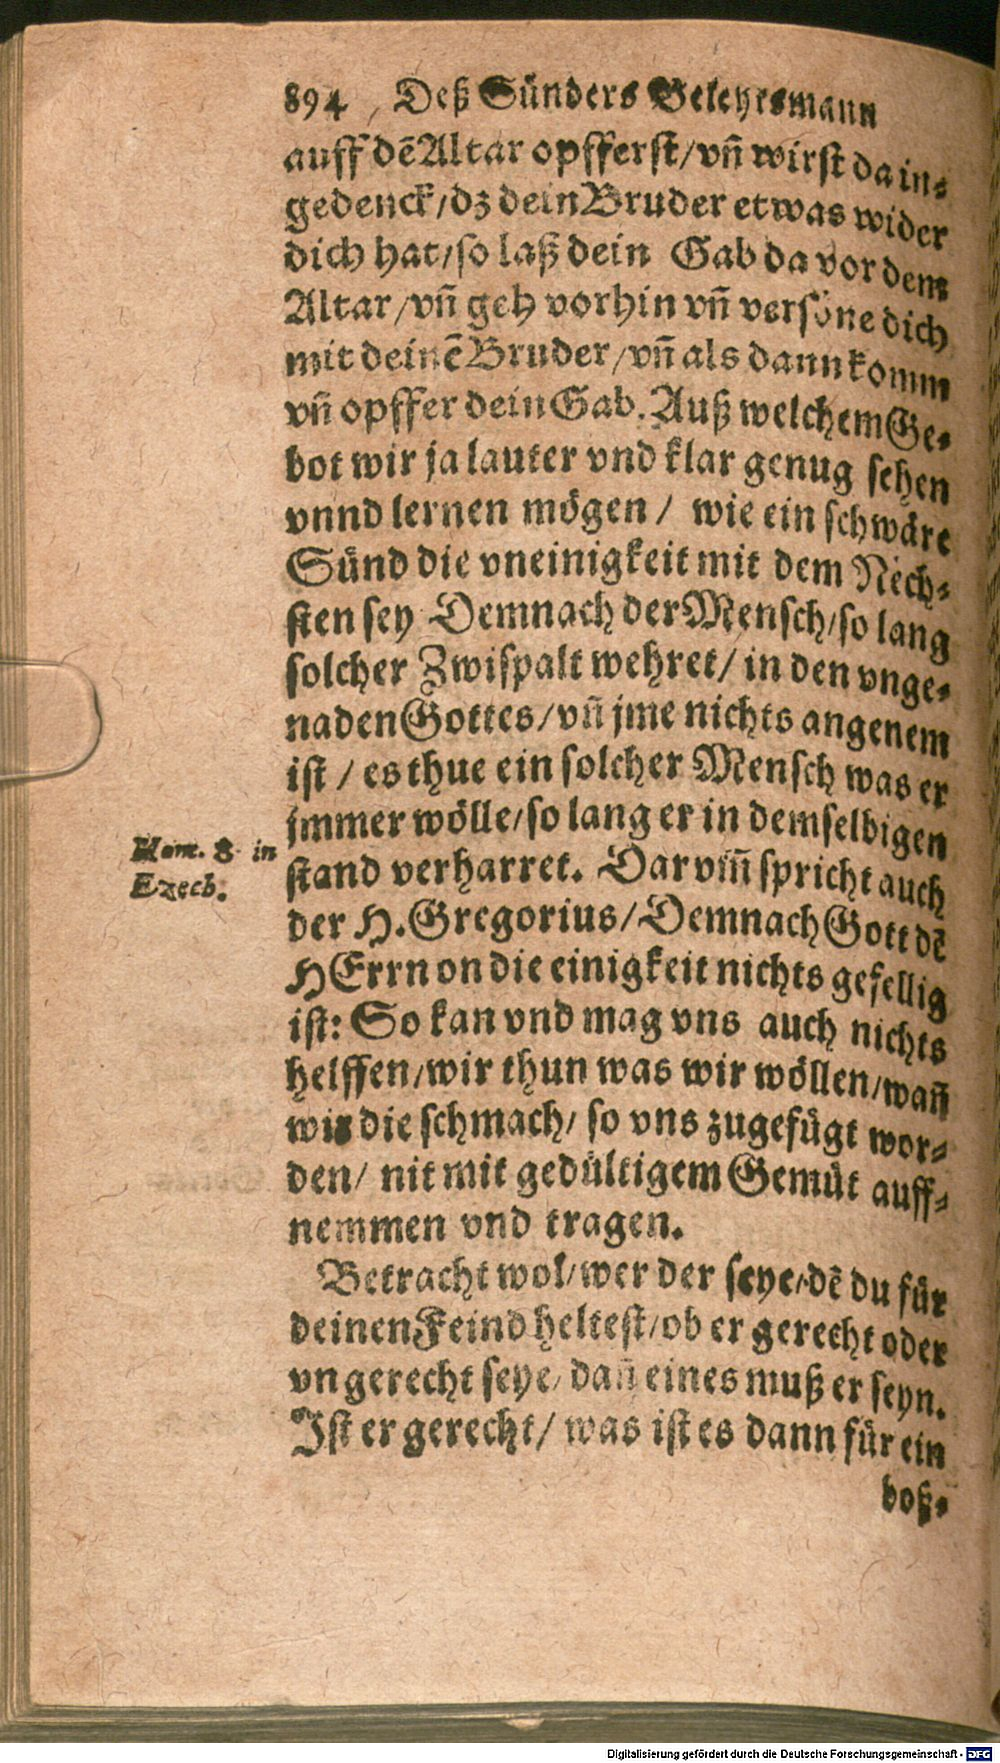 894 Deß Sünders Geleytsmann
auff dē Altar opfferst/ vñ wirst da in-
gedenck/ dz dein Bruder etwas wider
dich hat/ so laß dein Gab da vor dem
Altar/ vñ geh vorhin vñ versöne dich
mit deinē Bruder/ vñ als dann komm
vñ opffer dein Gab. Auß welchem Ge-
bot wir ja lauter vnd klar genug sehen
vnnd lernen mögen/ wie ein schwäre
Sünd die vneinigkeit mit dem Nech-
sten sey Demnach der Mensch/ so lang
solcher Zwispalt wehret/ in den vnge-
naden Gottes/ vñ jme nichts angenem
ist/ es thue ein solcher Mensch was er
jmmer wölle/ so lang er in demselbigen
Hom. 8 in
Ezech.
stand verharret. Darvm̃ spricht auch
der H. Gregorius/ Demnach Gott dē
HErrn on die einigkeit nichts gefellig
ist: So kan vnd mag vns auch nichts
helffen/ wir thun was wir wöllen/ wañ
wir die schmach/ so vns zugefügt wor-
den/ nit mit gedültigem Gemüt auff-
nemmen vnd tragen.
Betracht wol/ wer der seye/ dē du für
deinen Feind heltest/ ob er gerecht oder
vngerecht seye/ dañ eines muß er seyn.
Ist er gerecht/ was ist es dann für ein
boß-
Digitalisierung gefördert durch die Deutsche Forschungsgemeinschaft - DFG